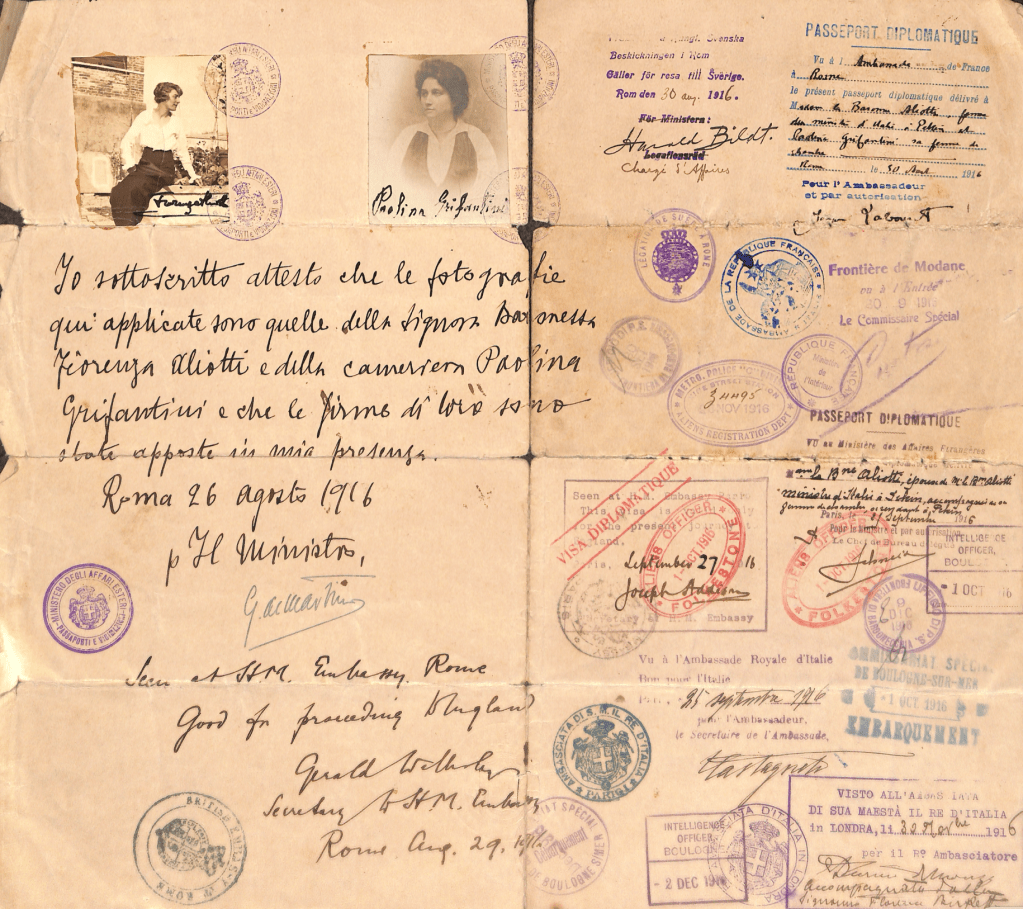 Paolina Grifantini
Io sottoscritto attesto che le fotografie
qui applicate sono quelle della Signora Baronessa
Fiorenza Aliotti e della cameriera Paolina
Grifantini e che le firme di loro sono
state apposte in mia presenza.
Roma 26 agosto 1916
p Il Ministro,
G. de Martino
MINISTERO DEGLI AFFARI ESTERI
PASSAPORTI E VIGILANZA
Seen at H.M. Embassy Rome
Good for proceeding to England
Gerald
Secretary to H.M. Embassy
Rome Aug. 29. 1916
BRITISH EMBASSY AT ROME
Svenska
Beskickningen i Rom
Gäller för resa till Sverige.
Rom den 30 aug. 1916.
För Ministern:
Harald Bildt.
Legationsråd
Chargé d'Affaires
PASSEPORT DIPLOMATIQUE
Vu à l'Ambassade de France
à Rome
le présent passeport diplomatique délivré à
Madame la Baronne Aliotti, femme
du ministre d'Italie à Pékin et
Paolina Grifantini sa femme de
chambre
Rome le 30 Août 1916
Pour l'Ambassadeur
et par autorisation
AMBASSADE DE LA REPUBLIQUE FRANÇAISE
Frontière de Modane
vu à l'Entrée
Le Commissaire Spécial
REPUBLIQUE FRANÇAISE
Ministère de l'Intérieur
METRO. POLICE
34495
NOV 1916
ALIENS REGISTRATION DEPT
PASSEPORT DIPLOMATIQUE
VU au Ministère des Affaires Étrangères
Mme la Bne Aliotti, épouse de M. le Bon Aliotti
ministre d'Italie à Pékin, accompagnée de sa
femme de chambre se rendant à Pékin
Paris, le Septembre 1916
Pour le Ministre et par autorisation
Le Chef de Bureau
VISA DIPLOMATIQUE
Seen at H.M. Embassy Paris
This Visa is
for the present journey
September 27 16
Joseph Addison
H.M. Embassy
ALIENS OFFICER
1 OCT 1916
FOLKESTONE
ALIENS OFFICER
FOLKESTONE
INTELLIGENCE
OFFICER,
BOUL
-1 OCT 16
DI P.S.
DI BARDONECCHIA
DIC
1916
Vu à l'Ambassade Royale d'Italie
Bon pour l'Italie
25 septembre 1916
pour l'Ambassadeur,
le Secrétaire de l'Ambassade,
AMBASCIATA DI S. M. IL RE D'ITALIA
PARIGI
COMMISSARIAT SPECIAL
DE BOULOGNE-SUR-MER
-1 OCT 1916
EMBARQUEMENT
INTELLIGENCE
OFFICER
BOULOGNE
-2 DEC 1916
AMBASCIATA D'ITALIA IN LONDRA
VISTO ALL'AMBASCIATA
DI SUA MAESTÀ IL RE D'ITALIA
in LONDRA, li 30 Novbre 1916
per il Ro Ambasciatore
accompagnata dalla
Signorina Florence